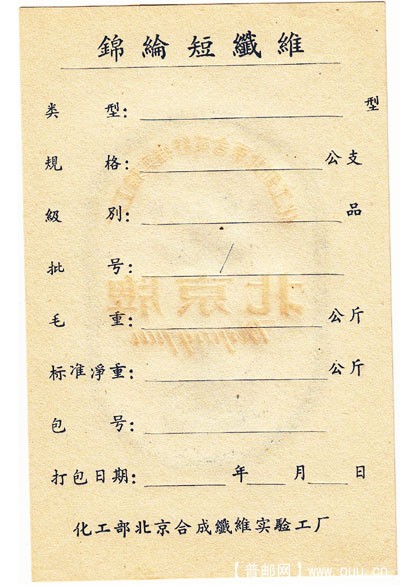 錦綸短纖維
类 型: 型
規 格: 公支
級 別: 品
批 号:
毛 重: 公斤
标准淨重: 公斤
包 号:
打包日期: 年 月 日
化工部北京合成纖維实驗工厂
北京牌
【普邮网】www.puu.cn